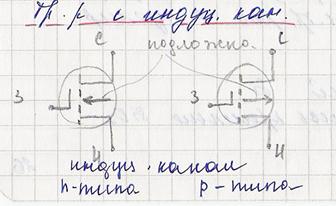 Тр. р с индуц. кан.
С
подложка
С
З
З
И
И
индуц. канал
n-типа
p-типа